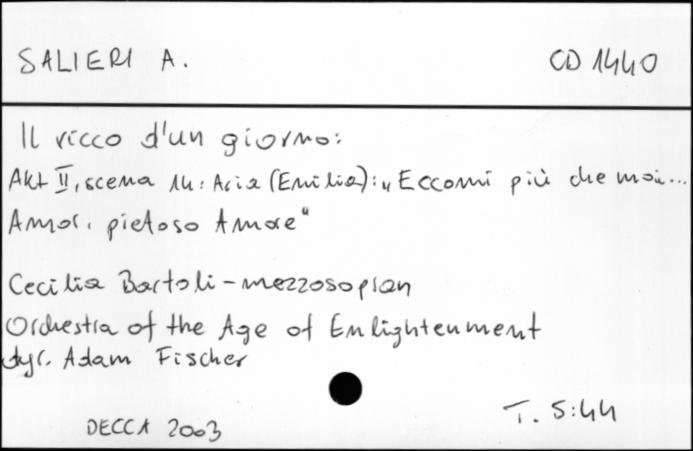 SALIERI A.
CD 1440
Il ricco d'un giorno:
Akt II, scena 14: Aria (Emilia): „Eccomi più che mai...
Amor, pietoso Amore"
Cecilia Bartoli - mezzosopran
Orchestra of the Age of Enlightenment
dyr. Adam Fischer
T. 5:44
DECCA 2003